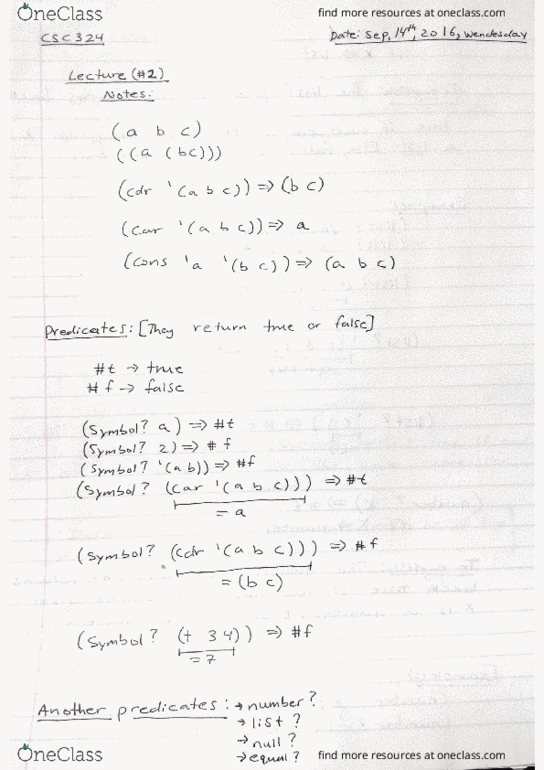 OneClass find more resources at oneclass.com
CSC324 Date: Sep, 14th, 2016, Wendesday
Lecture (#2)
Notes:
(a b c)
((a (bc)))
(cdr '(a b c)) => (b c)
(car '(a b c)) => a
(cons 'a '(b c)) => (a b c)
Predicates: [They return true or false]
#t → true
#f → false
(Symbol? a) => #t
(Symbol? 2) => #f
(Symbol? '(a b)) => #f
(Symbol? (car '(a b c))) => #t
= a
(Symbol? (cdr '(a b c))) => #f
= (b c)
(Symbol? (+ 3 4)) => #f
= 7
Another predicates: → number?
→ list ?
→ null ?
→ equal ?
OneClass find more resources at oneclass.com